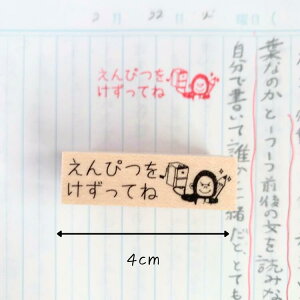 2月22日(
曜日(
えんぴつを
けずってね
えんぴつを
けずってね
4cm
葉なのか と一つ一つ前後の文を読みな
自分で書いて誰
一緒だと、とても